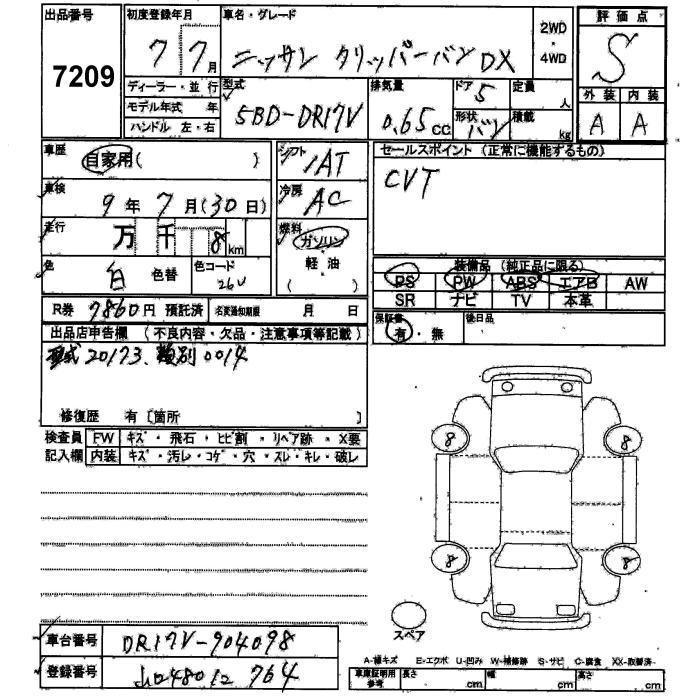 出品番号
7209
初度登録年月
7 7月
車名・グレード
ニッサン クリッパーバン DX
2WD
・
4WD
評価点
S
外装 内装
A A
ディーラー・並行
モデル年式 年
ハンドル 左・右
型式
5BD-DR17V
排気量
0.65cc
ドア 5
形状 バン
定員 人
積載 kg
車歴
自家用( )
車検
9年7月(30日)
走行
万 千 8km
色
白 色替
色コード
26U
シフト
IAT
冷房
AC
燃料
ガソリン
軽・油
( )
セールスポイント (正常に機能するもの)
CVT
装備品 (純正品に限る)
PS PW ABS エアB AW
SR ナビ TV 本革
保証書
有・無
後日品
R券 7860円 預託済 名変通知期限 月 日
出品店申告欄 (不良内容・欠品・注意事項等記載)
型式 20173、類別0014
修復歴 有 [箇所 ]
検査員 FW キズ・飛石・ヒビ割・リペア跡・X要
記入欄 内装 キズ・汚レ・コゲ・穴・スレ・キレ・破レ
8 8
8 8
スペア
車台番号 DR17V-904098
登録番号 480 764
A-線キズ E-エクボ U-凹み W-補修跡 S-サビ C-腐食 XX-取替済
車庫証明用
参考
長さ cm 幅 cm 高さ cm